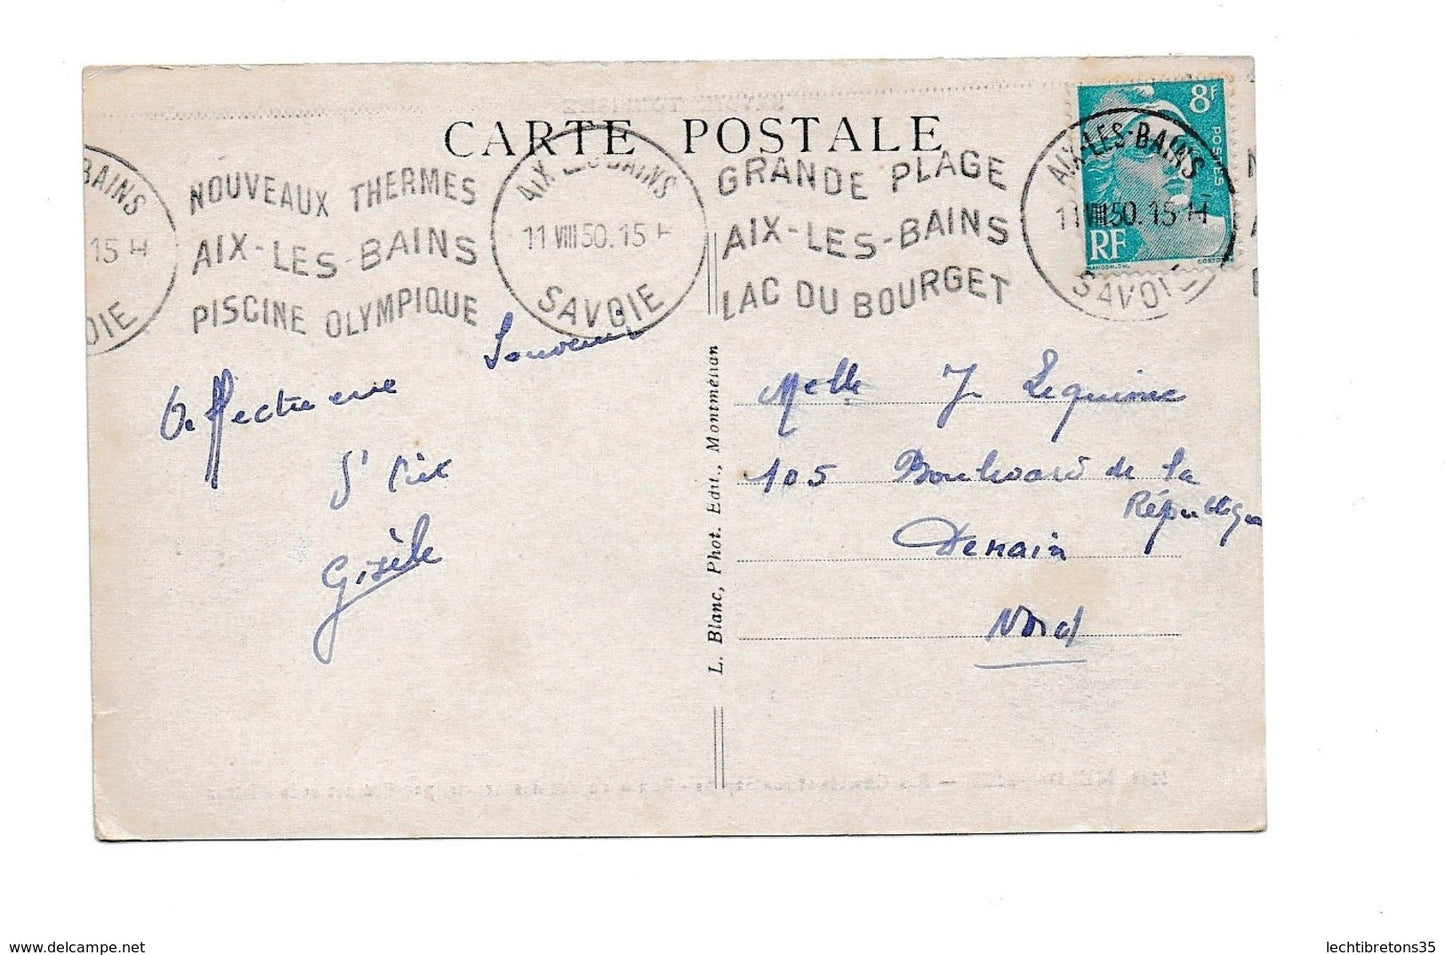 CARTE POSTALE
BAINS
15 H
OIE
NOUVEAUX THERMES
AIX-LES-BAINS
PISCINE OLYMPIQUE
AIX LES BAINS
11 VIII 50.15 H
SAVOIE
GRANDE PLAGE
AIX-LES-BAINS
LAC DU BOURGET
8F
POSTES
RF
AIX-LES-BAINS
11 VIII 50.15 H
SAVOIE
Affectueux Souvenir
Gisèle
L. Blanc, Phot. Edit., Montmélian
Melle J. Lequime
105 Boulevard de la
République
Denain
Nord
www.delcampe.net
lechtibretons35